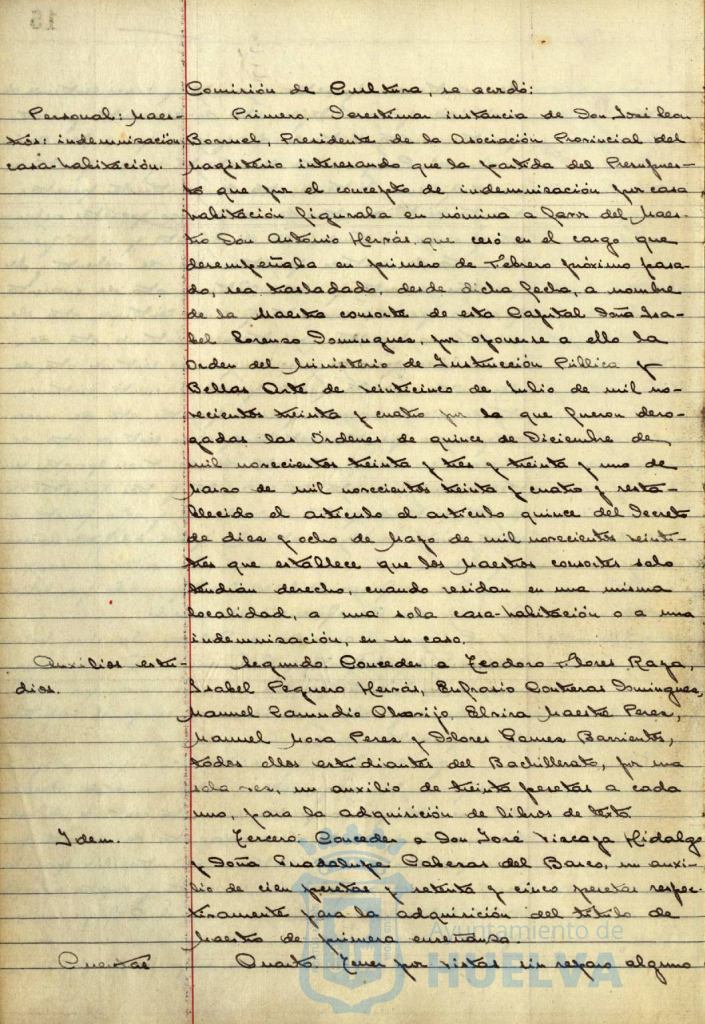 Comisión de Cultura, se acordó:
Personal: Maes-
tros: indemnización
casa-habitación.
Primero. Desestimar instancia de Don José León
Borruel, Presidente de la Asociación Provincial del
Magisterio interesando que la partida del Presupues-
to que por el concepto de indemnización por casa
habitación figuraba en nómina a favor del Maes-
tro Don Antonio Hervás, que cesó en el cargo que
desempeñaba en primero de Febrero próximo pasa-
do, sea trasladado, desde dicha fecha, a nombre
de la Maestra consorte de esta Capital Doña Isa-
bel Lorenzo Domínguez, por oponerse a ello la
Orden del Ministerio de Instrucción Pública y
Bellas Artes de veinticinco de Julio de mil no-
vecientos treinta y cuatro por la que fueron dero-
gadas las Órdenes de quince de Diciembre de
mil novecientos treinta y tres y treinta y uno de
Marzo de mil novecientos treinta y cuatro y resta-
blecido el artículo el artículo quince del Decreto
de diez y ocho de Mayo de mil novecientos veinti-
trés que establece que los Maestros consortes solo
tendrán derecho, cuando residan en una misma
localidad, a una sola casa-habitación o a una
indemnización, en su caso.
Auxilios estu-
dios.
Segundo. Conceder a Teodoro Flores Raya,
Isabel Peguero Hervás, Eufrasio Contreras Domínguez,
Manuel Zamudio Elvira Maestre Perez,
Manuel Mora Perez y Dolores Gomez Barrientos,
todos ellos estudiantes del Bachillerato, por una
sola vez, un auxilio de treinta pesetas a cada
uno, para la adquisición de libros de texto.
Idem.
Tercero. Conceder a Don José Vizcaya Hidalgo
y Doña Guadalupe Caberas del Barco, un auxi-
lio de cien pesetas y setenta y cinco pesetas respec-
tivamente para la adquisición del título de
Maestro de primera enseñanza.
Cuentas
Cuarto. Tener por vistas, sin reparo alguno
Ayuntamiento de
HUELVA
15